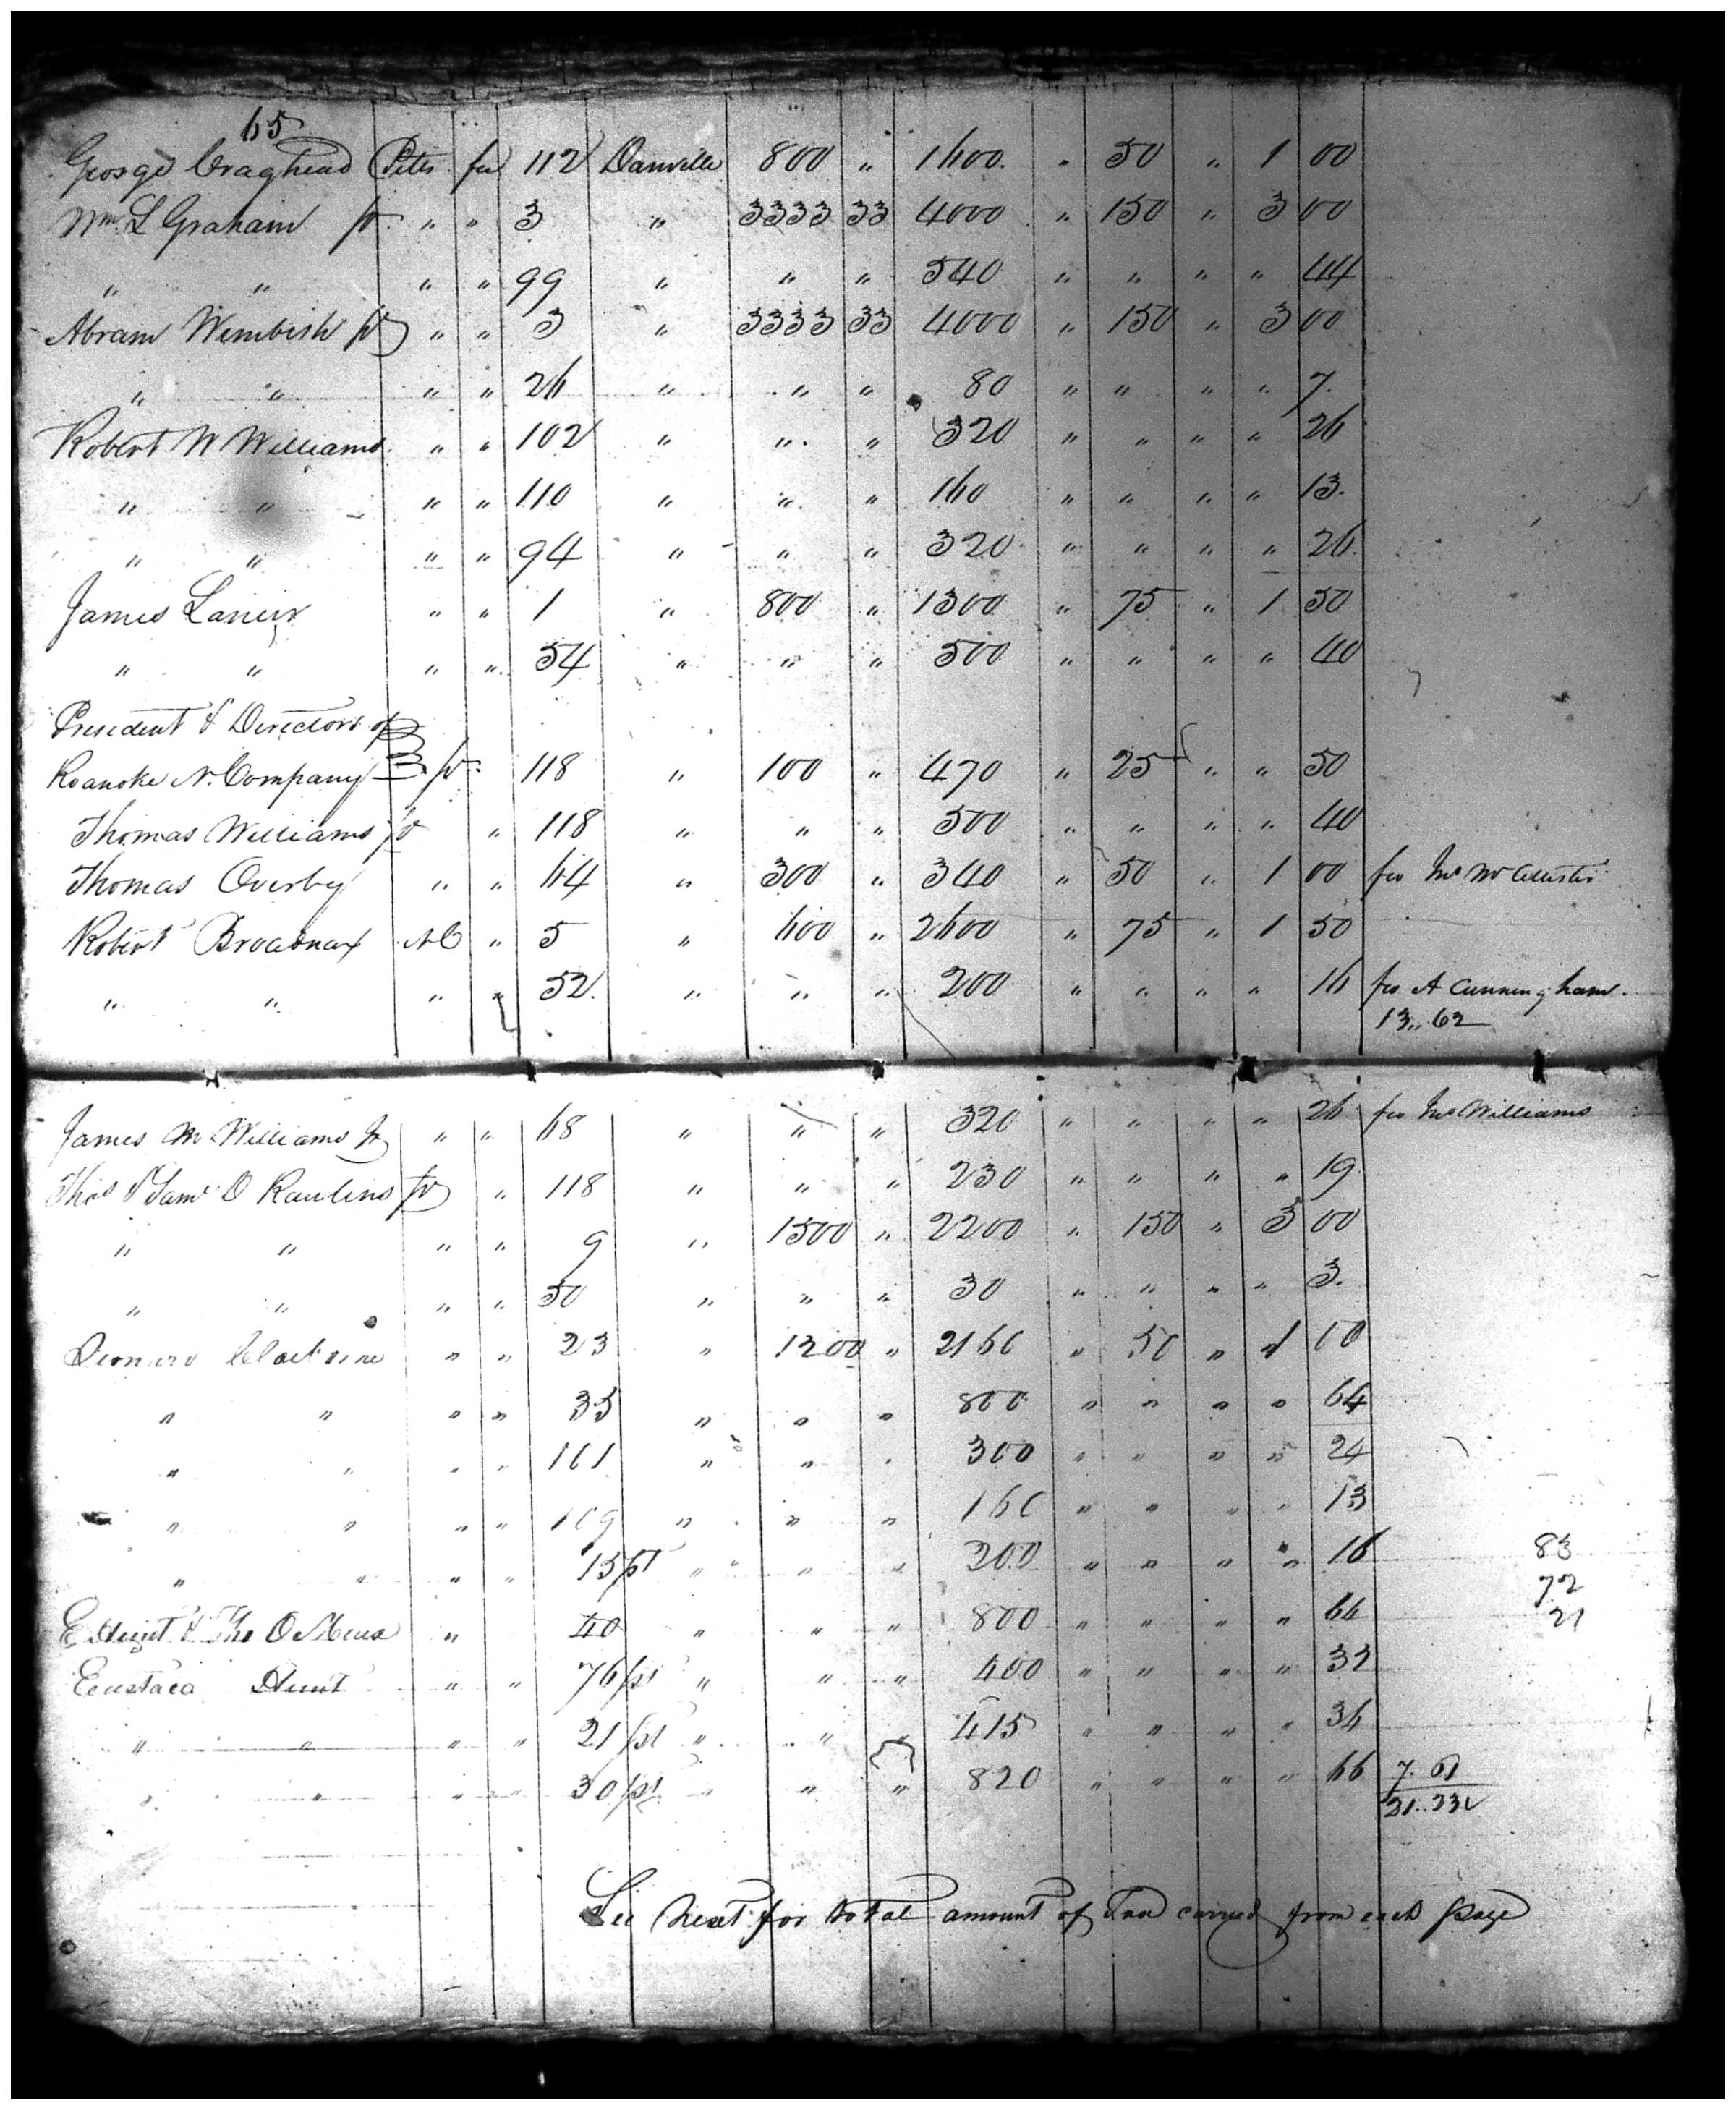 65
George Craghead Pitts fee 112 Danville 800 " 1600 " 50 " 1 00
Wm L Graham pr " " 3 " 3333 33 4000 " 150 " 3 00
" " " " 99 " " " 540 " " " " 44
Abram Wimbish pr " " 3 " 3333 33 4000 " 150 " 3 00
" " " " 26 " " " 80 " " " " 7
Robert W Williams " " 102 " " " 320 " " " " 26
" " " " 110 " " " 160 " " " " 13
" " " " 94 " " " 320 " " " " 26
James Lanier " " 1 " 800 " 1300 " 75 " 1 50
" " " " 54 " " " 500 " " " " 40
President & Directors of
Roanoke N. Company pr 118 " 100 " 470 " 25 " " 50
Thomas Williams pr " 118 " " " 500 " " " " 40
Thomas Overby " " 64 " 300 " 340 " 50 " 1 00 fro McCallister
Robert Broadnax NC " 5 " 600 " 2600 " 75 " 1 50
" " " " 52 " " " 200 " " " " 16 fro A Cunningham
13,,62
James M Williams Jr " " 68 " " " 320 " " " " 26 fro Williams
Thos & Saml D Rawlins pr " 118 " " " 230 " " " " 19
" " " " 9 " 1500 " 2200 " 150 " 3 00
" " " " 50 " " " 30 " " " " 3
Leonard Claiborne " " 23 " 1200 " 2160 " 50 " 1 00
" " " " 35 " " " 800 " " " " 64
" " " " 101 " " " 300 " " " " 24
" " " " 109 " " " 160 " " " " 13
" " " " 15 pt " " " 200 " " " " 16 83
72
E Hunt & Tho D Neal " 40 " " " 800 " " " " 64 21
Eustace Hunt " " 76 pt " " " 400 " " " " 32
" " " " 21 pt " " " 415 " " " " 36
" " " " 30 pt " " " 820 " " " " 66 7.61
21..23
See next for total amount of Tax carried from each page